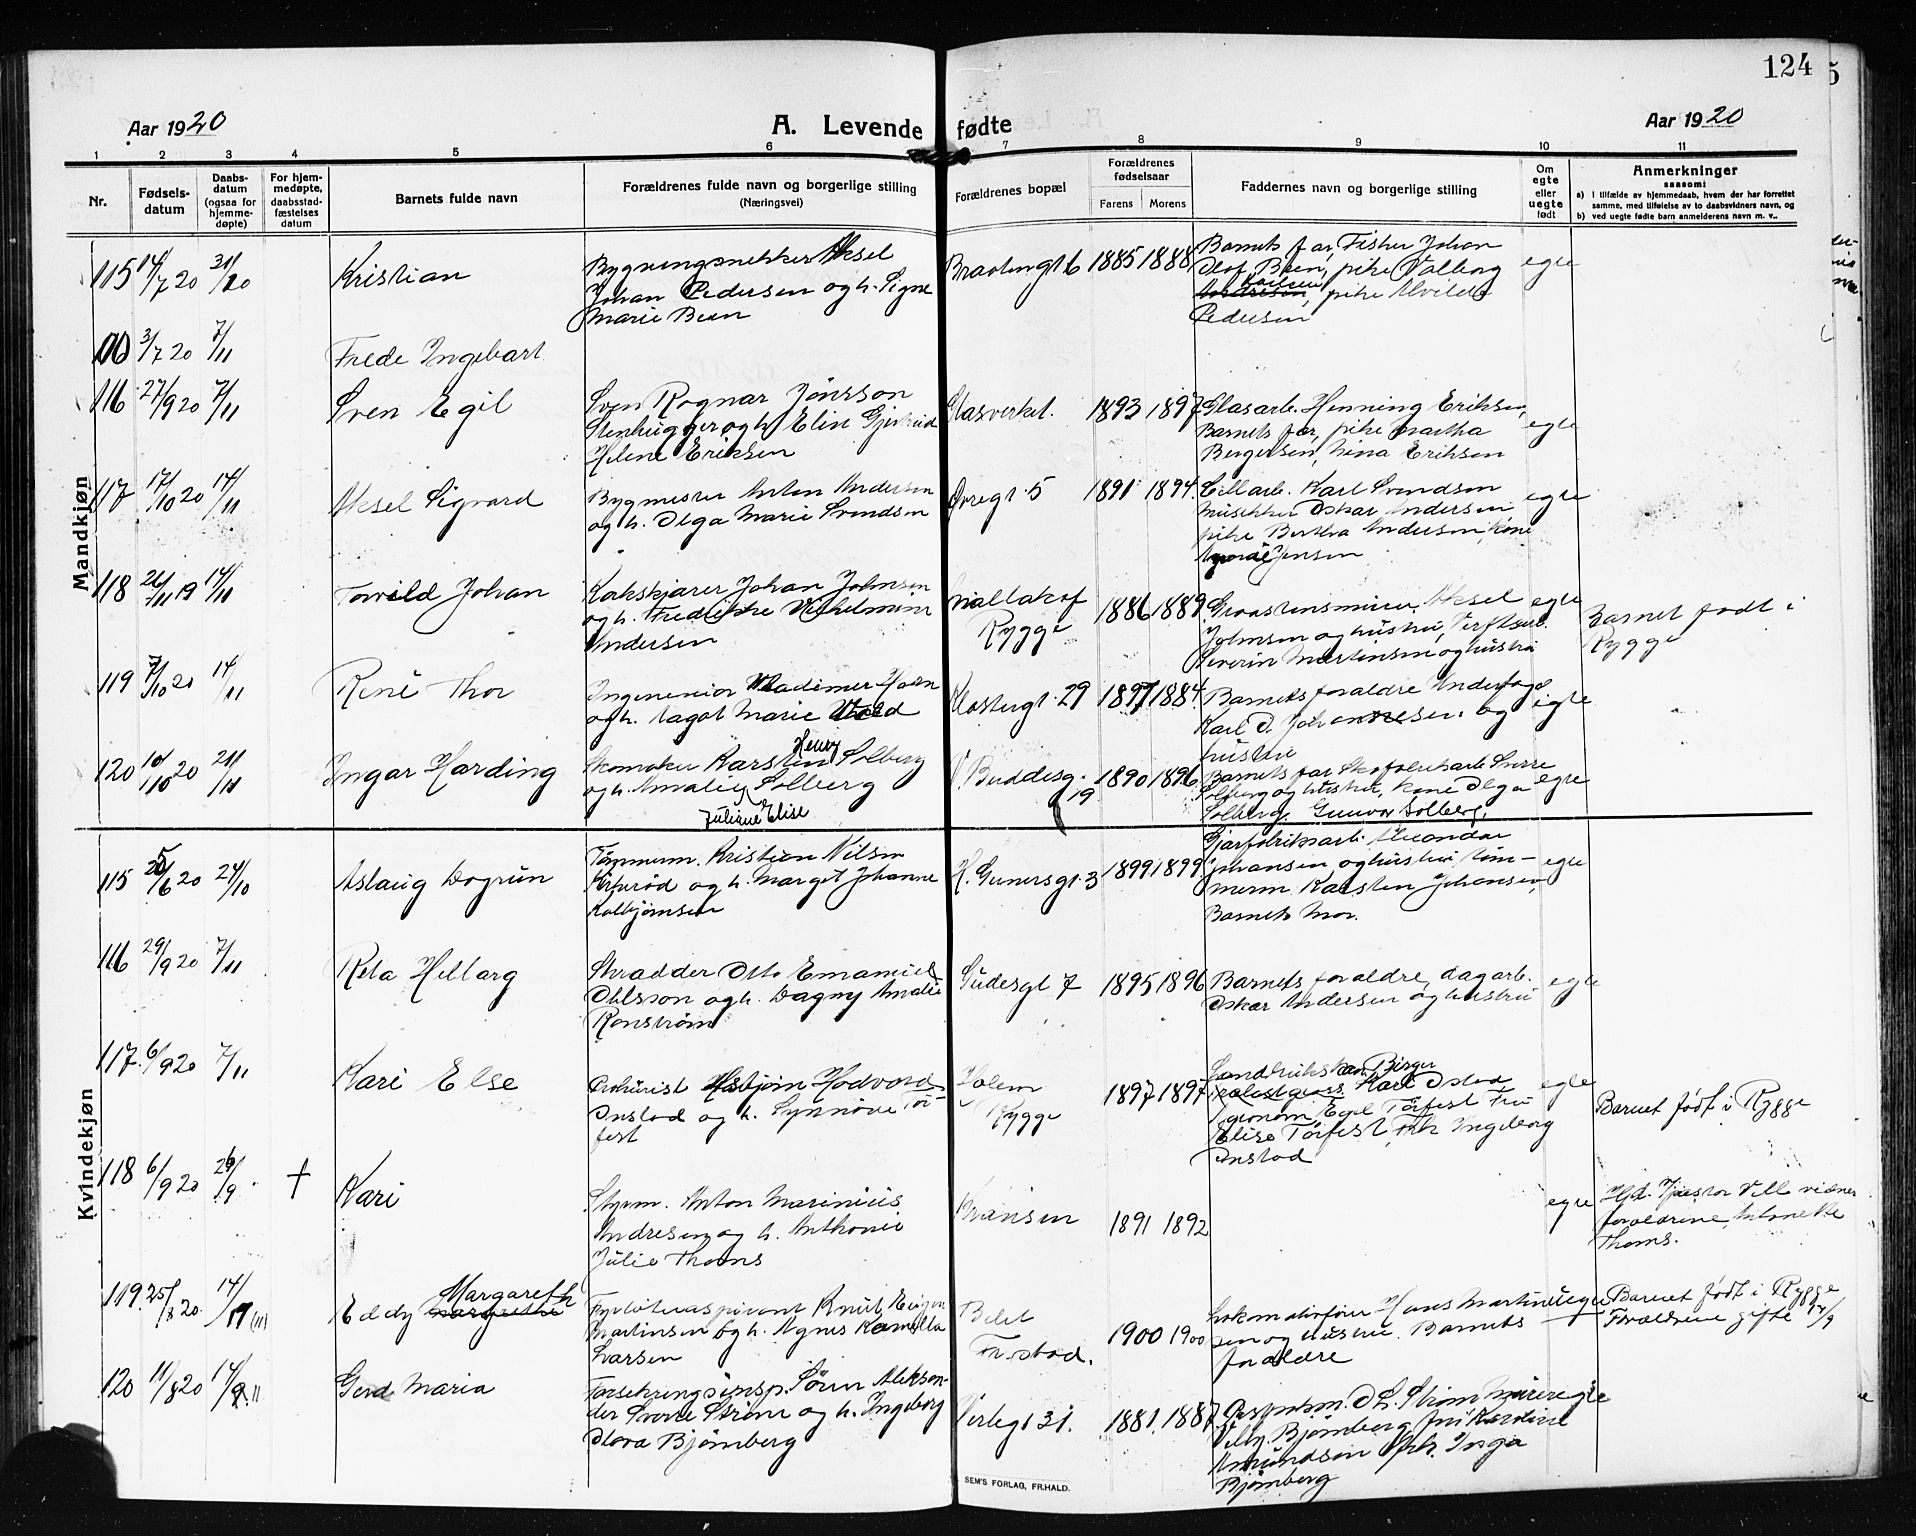 124
Aar 1920
A. Levende fødte
Aar 1920
1 2 3 4 5 6 7 8 9 10 11
Nr.
Fødsels-
datum
Daabs-
datum
(ogsaa for
hjemme-
døpte)
For hjem-
medøpte,
daabsstad-
fæstelses
datum
Barnets fulde navn
Forældrenes fulde navn og borgerlige stilling
(Næringsvei)
Forældrenes bopæl
Forældrenes
fødselsaar
Farens Morens
Faddernes navn og borgerlige stilling
Om
egte
eller
uegte
født
Anmerkninger
saasom:
a) i tilfælde av hjemmedaab, hvem der har forrettet
samme, med tilføielse av to daabsvidners navn, og
b) ved uegte fødte barn anmelderens navn m. v..
Mandkjøn
115 14/7 20 31/10
Kristian
Bygningssnekker Aksel
Johan Pedersen og h. Signe
Marie Been
1885 1888
Barnets far, Fisker Johan
Olof Been, pike Valborg
pike Alvilde
Pedersen
egte
3/7 20 7/11
Frede Ingebart
116 27/9 20 7/11
Sven Egil
Sven Ragnar Jönsson
Stenhugger og h. Elin
Helene Eriksen
Glasverket.
1893 1897
Glasarb. Henning Eriksen,
Barnets far, pike Martha
Bergersen, Lina Eriksen
egte
117 17/10 20 14/11
Aksel Sigvard
Bygmester Anton Andersen
og h. Olga Marie Svendsen
Øvregt. 5
1891 1894
Cellarb. Karl Svendsen
Oskar Andersen
pike Bertha Andersen, kone
Jensen
egte
118 26/11 19 14/11
Torvild Johan
Korkskjærer Johan Johnsen
og h. Fredrikke Vilhelmine
Andersen
Rygge
1886 1889
Aksel
Johnsen og hustru, Verftsarb.
Severin Martinsen og hustru
egte
Barnet født i
Rygge
119 7/10 20 14/11
René Thor
Ingeneniør Wladimer Hoen
og h. Aagot Marie
Klostergt. 29
1897 1884
Barnets forældre Underfoged
Karl D. Johannesen og
hustru
egte
120 10/10 20 21/11
Ingar Harding
Skomaker Karsten Henry Solberg
og h. Amalie Solberg
Juliane Elise
V. Buddesg.
19
1890 1896
Barnets far Skofabrikarb. Sverre
Solberg og hustru, kone Olga
Solberg, Gunvor Solberg.
egte
Kvindekjøn
115 25/6 20 24/10
Aslaug Dagrun
Tømmerm. Kristian Nilsen
og h. Margit Johanne
Kolbjørnsen
H. Gunersgt. 3
1899 1899
Johansen, og hustru, Tøm-
merm. Karsten Johansen,
Barnets Mor.
egte
116 29/9 20 7/11
Reta Helborg
Skrædder Otto Emanuel
Ohlsson og h. Dagny Amalie
Ronstrøm
Gudesgt 7
1895 1896
Barnets forældre, dagarb.
Oskar Andersen og hustru
egte
117 6/9 20 7/11
Kari Else
Prokurist Asbjørn Hødvard
Onstad og h. Synnøve Tor-
fest
Holem
Rygge
1897 1897
Birger
Karl Ostad
Agronom, Egil Torfest Fru
Elise Torfest, Frk Ingeborg
Onstad
egte
Barnet født i Rygge
118 6/9 20 26/9 †
Kari
Styrm. Anton Marinius
Andresen og h. Anthonie
Julie Thoms
Kransen
1891 1892
egte
vidner
forældrene, Antonette
Thoms.
119 25/8 20 14/11
Eddy Margareth
Knut Eugen
Martinsen og h. Agnes Kamilla
Larsen
1900 1900
Lokomotivfører Hans Martin-
sen og hustru. Barnets
forældre
Barnet født i Rygge
Forældrene gifte
120 11/8 20 14/11
Gerd Maria
Forsikringsinsp. Søren Aleksan-
der Sverre Strøm og h. Ingeborg
Nora Bjørnberg
Verlegt 31.
1881 1887
Strøm
Bjørnberg, fru Karoline
Amundsen frk. Inga
Bjørnberg
egte
SEM'S FORLAG, FR.HALD.